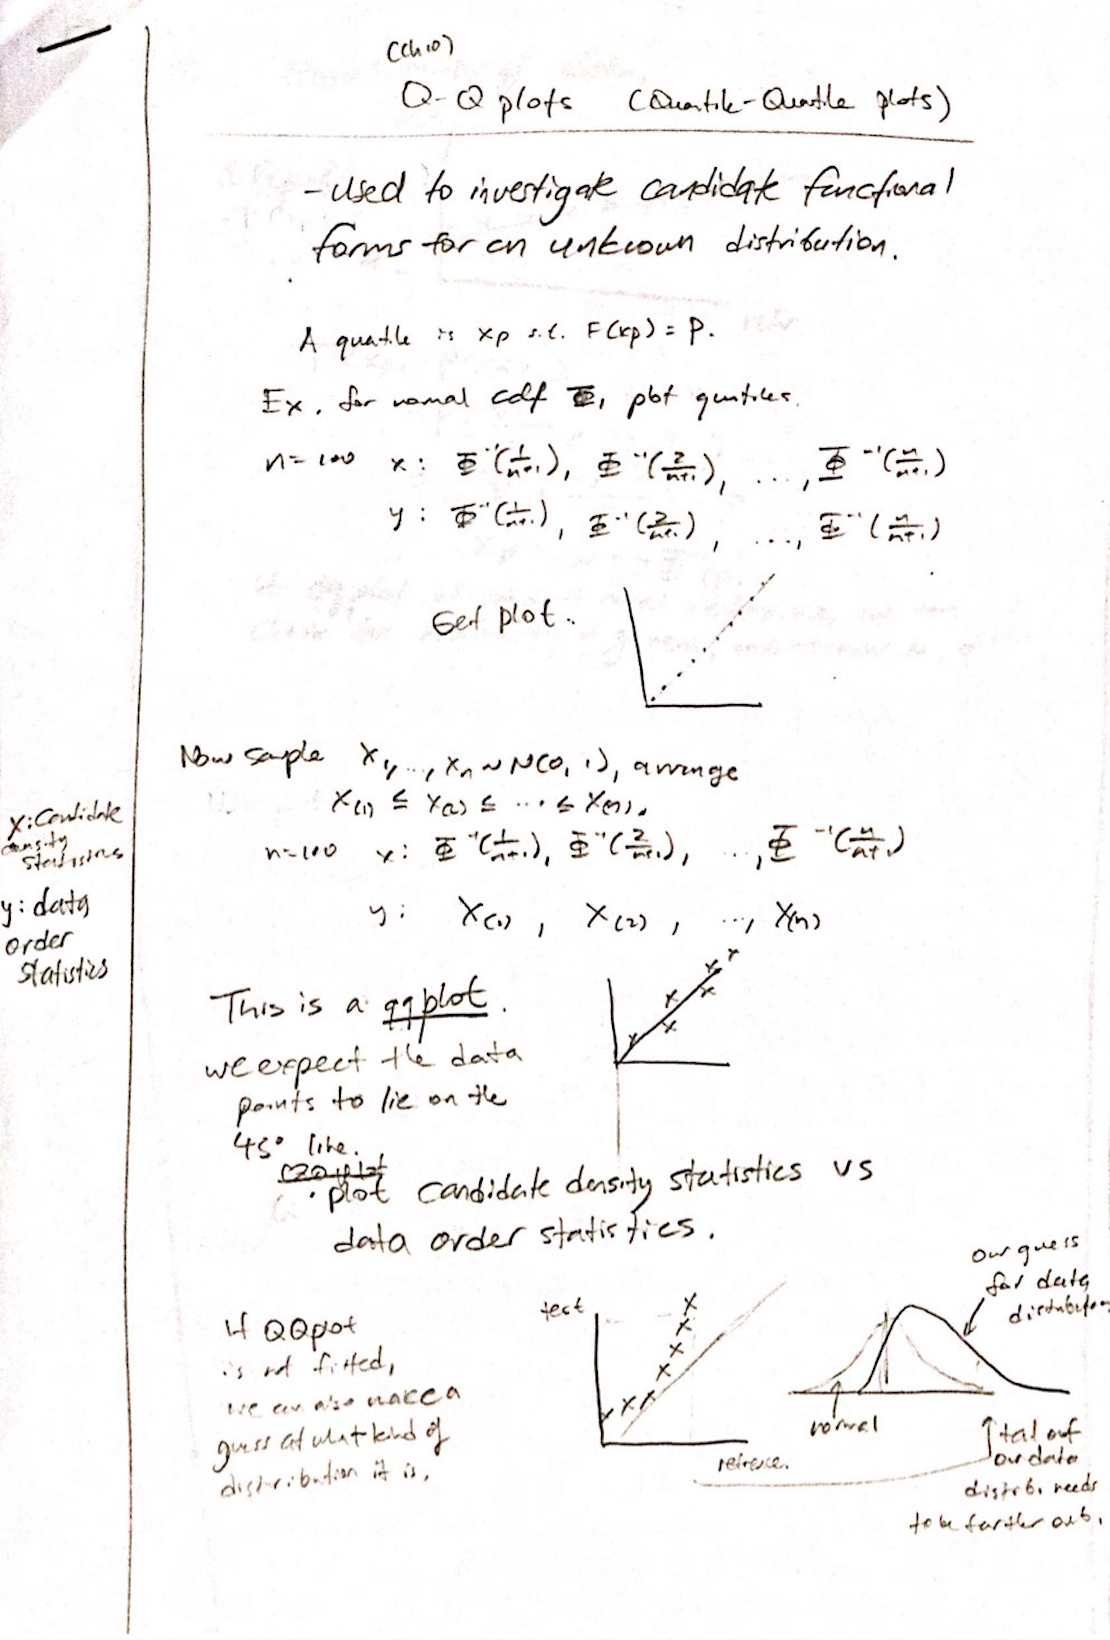 (Ch10)
Q-Q plots (Quantile-Quantile plots)
- Used to investigate candidate functional
forms for an unknown distribution.
A quatile is xp s.t. F(xp) = P.
Ex. for normal cdf Φ, plot quntiles.
n=100 x: Φ⁻¹(1/n+1), Φ⁻¹(2/n+1), ..., Φ⁻¹(n/n+1)
y: Φ⁻¹(1/n+1), Φ⁻¹(2/n+1), ..., Φ⁻¹(n/n+1)
Get plot.
Now sample X1, ..., Xn ~ N(0, 1), arrange
X(1) ≤ X(2) ≤ ... ≤ X(n).
n=100 x: Φ⁻¹(1/n+1), Φ⁻¹(2/n+1), ..., Φ⁻¹(n/n+1)
y: X(1), X(2), ..., X(n)
x: Candidate
density
statistics
y: data
order
statistics
This is a qqplot.
we expect the data
points to lie on the
45° line.
· plot candidate density statistics vs
data order statistics.
If QQplot
is not fitted,
we can also make a
guess at what kind of
distribution it is.
test
refrence.
our guess
for data
distribution
normal
tail of
our data
distrib. needs
to be farther out.